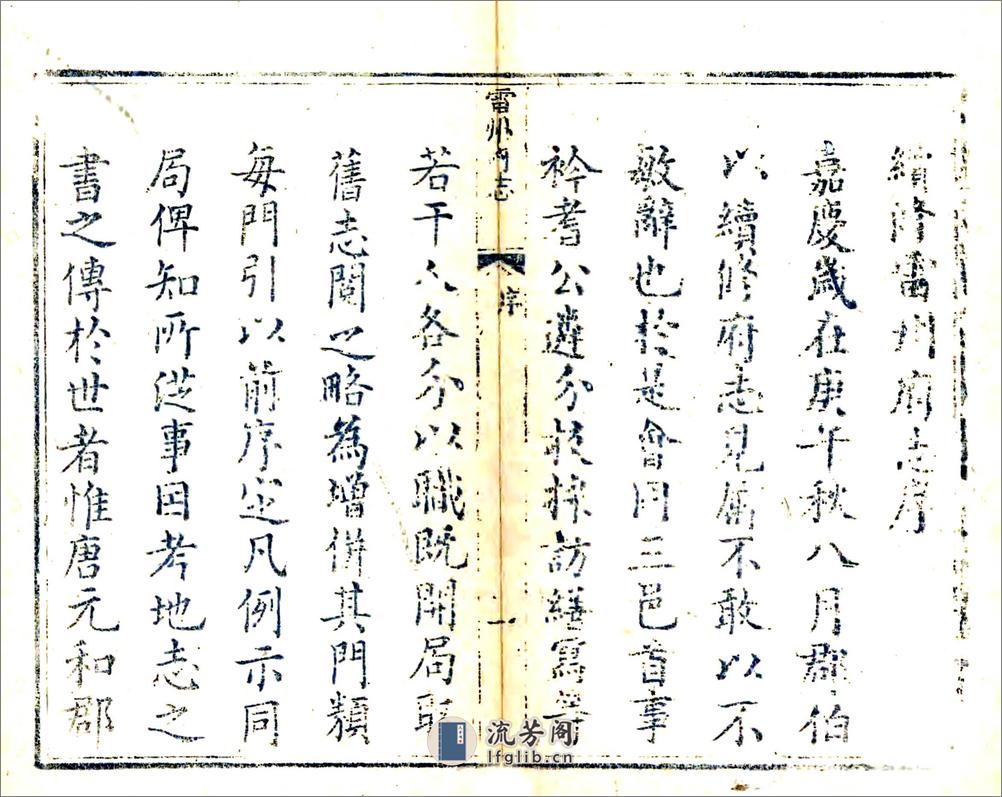 續脩雷州府志序
嘉慶歲在庚午秋八月郡伯
以續修府志見屬不敢以不
敏辭也於是會同三邑首事
衿耆公遴分校採訪繕寫等
雷州府志
序
一
若干人各分以職既開局取
舊志閱之略為增併其門類
每門引以前序定凡例示同
局俾知所從事因考地志之
書之傳於世者惟唐元和郡
流芳阁
lfglib.cn